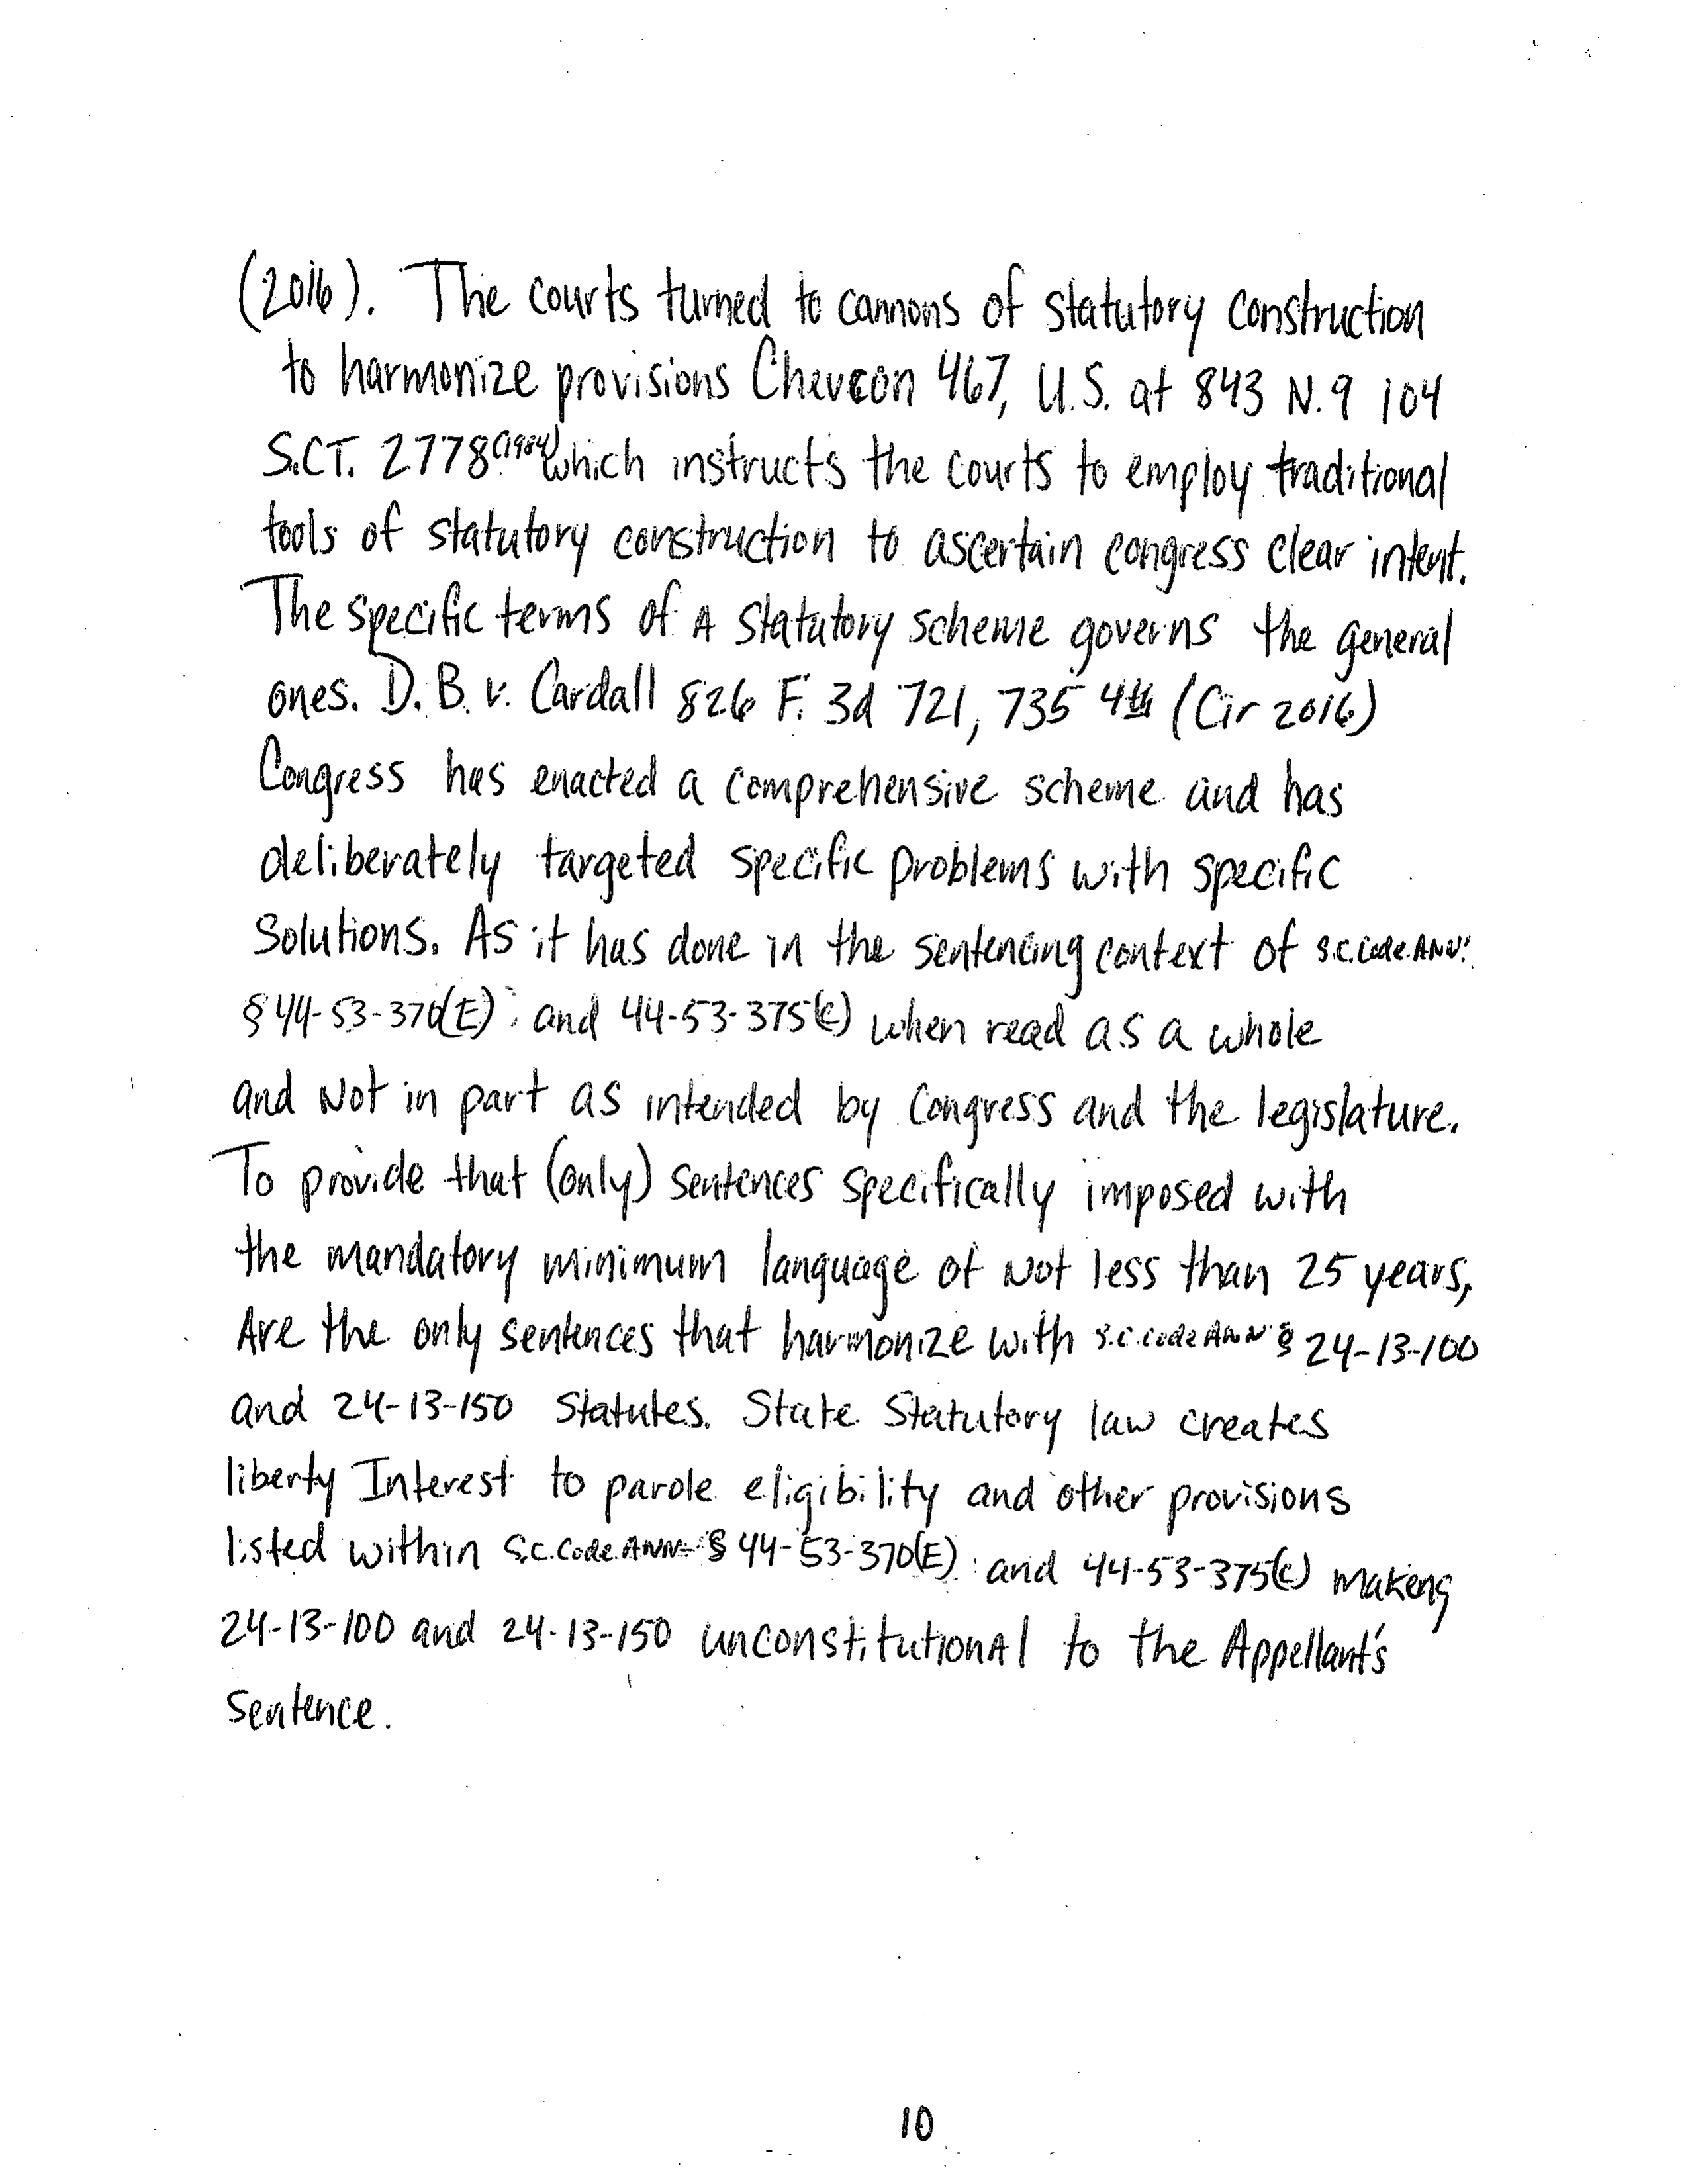 (2016). The courts turned to cannons of statutory construction
to harmonize provisions Chevron 467, U.S. at 843 N.9 104
S.CT. 2778 (1984) which instructs the courts to employ traditional
tools of statutory construction to ascertain congress clear intent.
The specific terms of A statutory scheme governs the general
ones. D.B. v. Cardall 826 F. 3d 721, 735 4th (Cir 2016)
Congress has enacted a comprehensive scheme and has
deliberately targeted specific problems with specific
Solutions. As it has done in the sentencing context of S.C. Code. ANN.
§ 44-53-370(E); and 44-53-375(C) when read as a whole
and Not in part as intended by Congress and the legislature.
To provide that (only) sentences specifically imposed with
the mandatory minimum language of Not less than 25 years,
Are the only sentences that harmonize with S.C. Code ANN § 24-13-100
and 24-13-150 Statutes. State Statutory law creates
liberty Interest to parole eligibility and other provisions
listed within S.C. Code. ANN. § 44-53-370(E): and 44-53-375(C) making
24-13-100 and 24-13-150 unconstitutionAl to the Appellant's
Sentence.
10